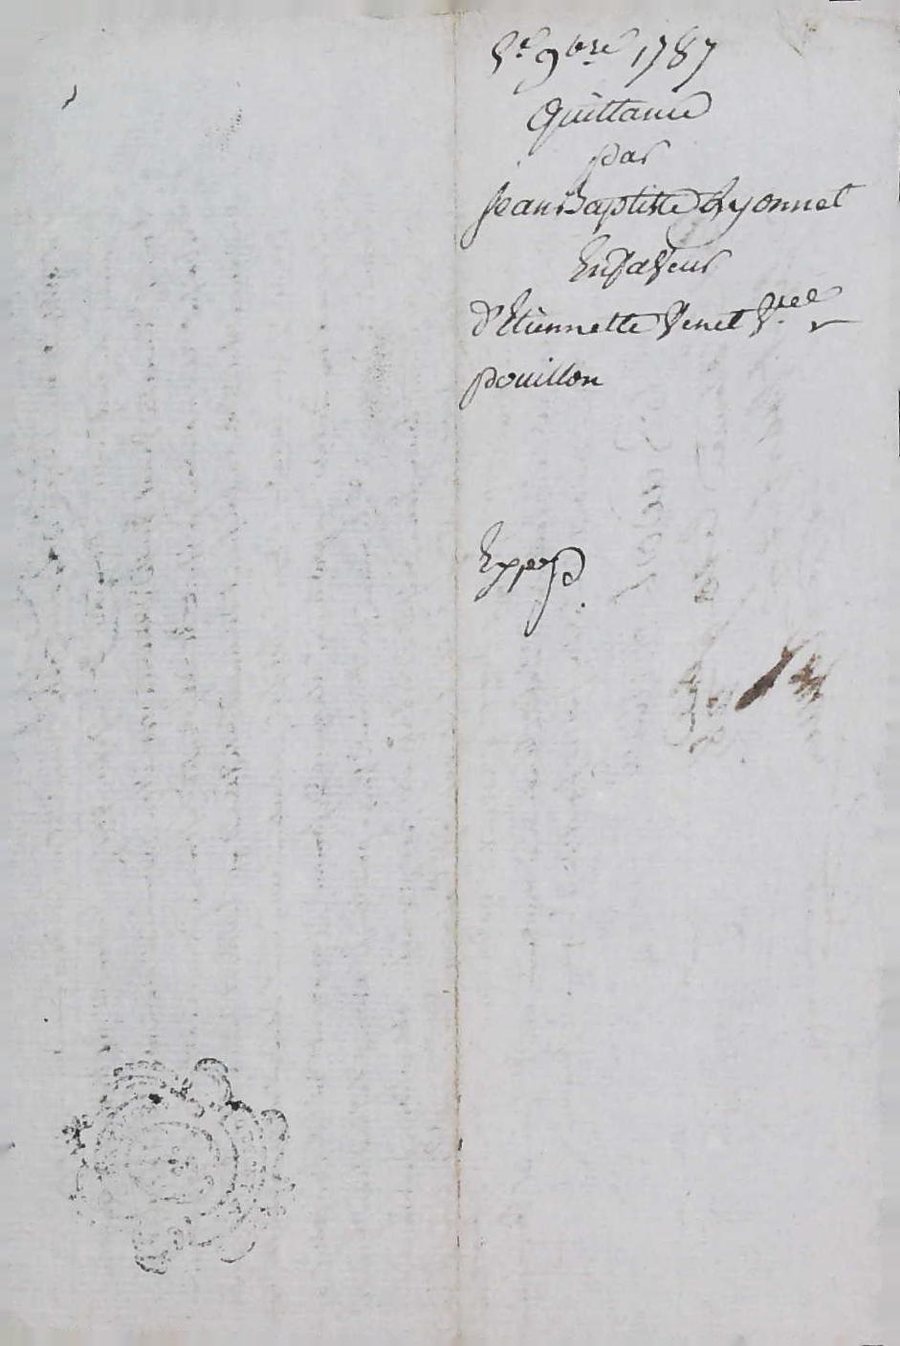 5e 9bre 1787
Quittance
par
Jean Baptiste Lyonnet
En faveur
d'Etiennette Venet Vve
pouillon